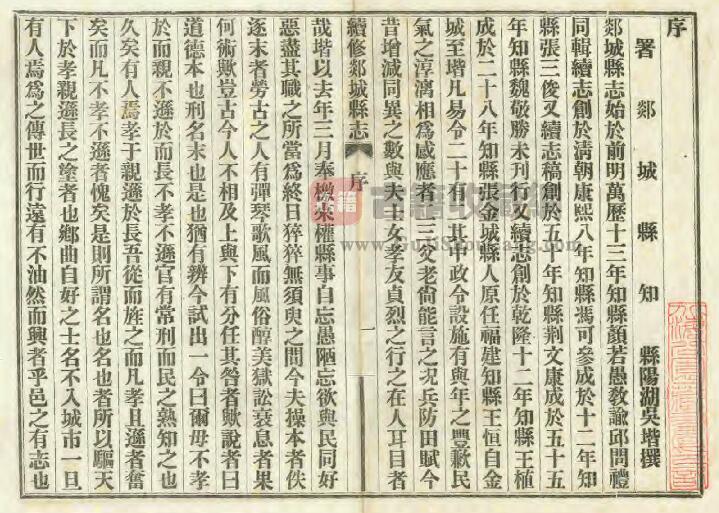 序
署郯城縣知縣陽湖吳堦撰
郯城縣志始於前明萬歷十三年知縣顏若愚教諭邱問禮
同輯續志創於清朝康熙八年知縣馮可參成於十二年知
縣張三俊又續志稿創於五十年知縣荆文康成於五十五
年知縣魏敬勝未刊行又續志創於乾隆十二年知縣王植
成於二十八年知縣張金城縣人原任福建知縣王恒自金
城至堦凡易令二十有一其中政令設施有與年之豐歉民
氣之淳漓相爲感應者一二父老尙能言之况兵防田賦今
昔增減同異之數與夫士女孝友貞烈之行之在人耳目者
續修郯城縣志
序
一
哉堦以去年三月奉檄來權縣事自忘愚陋忘欲與民同好
惡盡其職之所當爲終日猝猝無須臾之間今夫操本者佚
逐末者勞古之人有彈琴歌風而風俗醇美獄訟衰息者果
何術歟豈古今人不相及上與下有分任其咎者歟說者曰
道德本也刑名末也是也猶有辨今試出一令曰爾毋不孝
於而親不遜於而長不孝不遜官有常刑而民之熟知之也
久矣有人焉孝于親遜於長吾從而旌之而凡孝且遜者奮
矣而凡不孝不遜者愧矣是則所謂名也名也者所以驅天
下於孝親遜長之塗者也鄉曲自好之士名不入城市一旦
有人焉爲之傳世而行遠有不油然而興者乎邑之有志也
古籍
古籍收藏網
www.GuJiShouCang.com